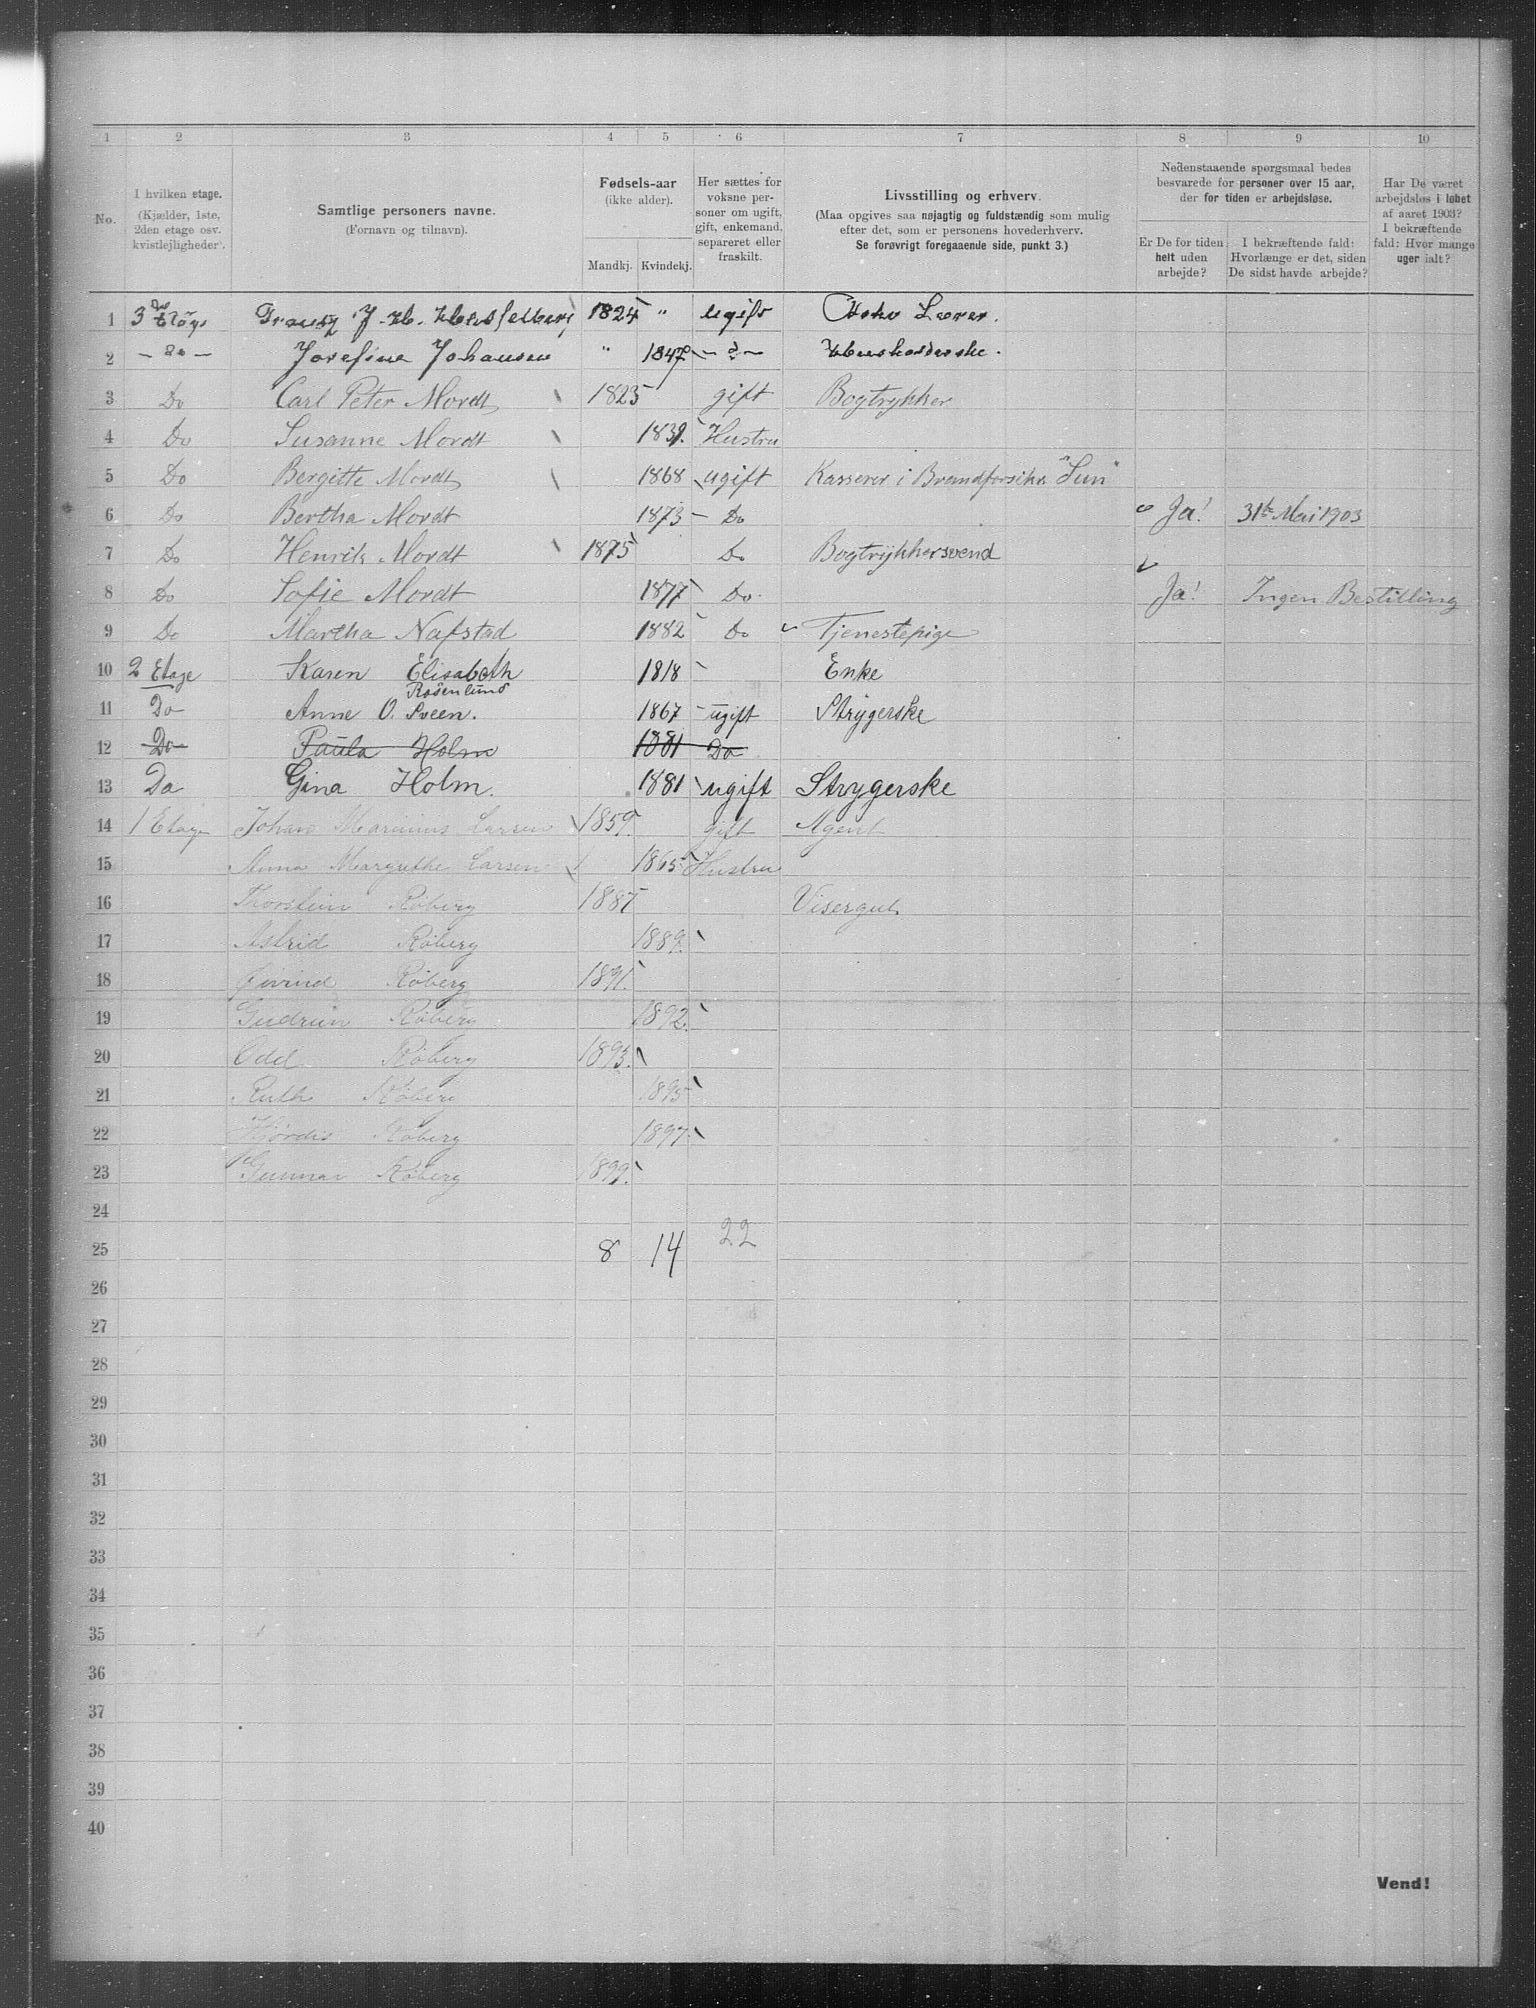 1 2 3 4 5 6 7 8 9 10
No. I hvilken etage. (Kjælder, 1ste, 2den etage osv. kvistlejligheder). Samtlige personers navne. (Fornavn og tilnavn). Fødsels-aar (ikke alder). Mandkj. Kvindekj. Her sættes for voksne personer om ugift, gift, enkemand, separeret eller fraskilt. Livsstilling og erhverv. (Maa opgives saa nøjagtig og fuldstændig som mulig efter det, som er personens hovederhverv. Se forøvrigt foregaaende side, punkt 3.) Nedenstaaende spørgsmaal bedes besvarede for personer over 15 aar, der for tiden er arbejdsløse. Er De for tiden helt uden arbejde? I bekræftende fald: Hvorlænge er det, siden De sidst havde arbejde? Har De været arbejdsløs i løbet af aaret 1903? I bekræftende fald: Hvor mange uger ialt?
1 3 Etage J. H. Hesselberg 1824 " ugift Lærer.
2 - Do - Josefine Johansen " 1847 - d - Husholderske.
3 Do Carl Peter Mordt 1825 gift Bogtrykker
4 Do Susanne Mordt 1839. Hustru
5 Do Bergitte Mordt 1868 ugift Kasserer i Brandforsikr. "Sun"
6 Do Bertha Mordt 1873 - Do Ja! 31te Mai 1903
7 Do Henrik Mordt 1875 Do Bogtrykkersvend
8 Do Sofie Mordt 1877 Do. Ja! Ingen Bestilling
9 Do Martha Nafstad 1882 Do Tjenestepige
10 2 Etage Karen Elisabeth Rosenlund 1818 Enke
11 Do Anne O. Sveen. 1867 ugift Strygerske
12 Do Paula Holm 1881 Do
13 Do Gina Holm. 1881 ugift Strygerske
14 1 Etage Johan Marinius Larsen 1859. gift Agent
15 Anna Margrethe Larsen 1865 Hustru
16 Thorstein Røberg 1887 Visergut
17 Astrid Røberg 1889.
18 Øivind Røberg 1891.
19 Gudrun Røberg 1892.
20 Odd Røberg 1893.
21 Ruth Røberg 1895
22 Hjørdis Røberg 1897.
23 Gunnar Røberg 1899.
24
25 8 14 22
26
27
28
29
30
31
32
33
34
35
36
37
38
39
40
Vend!